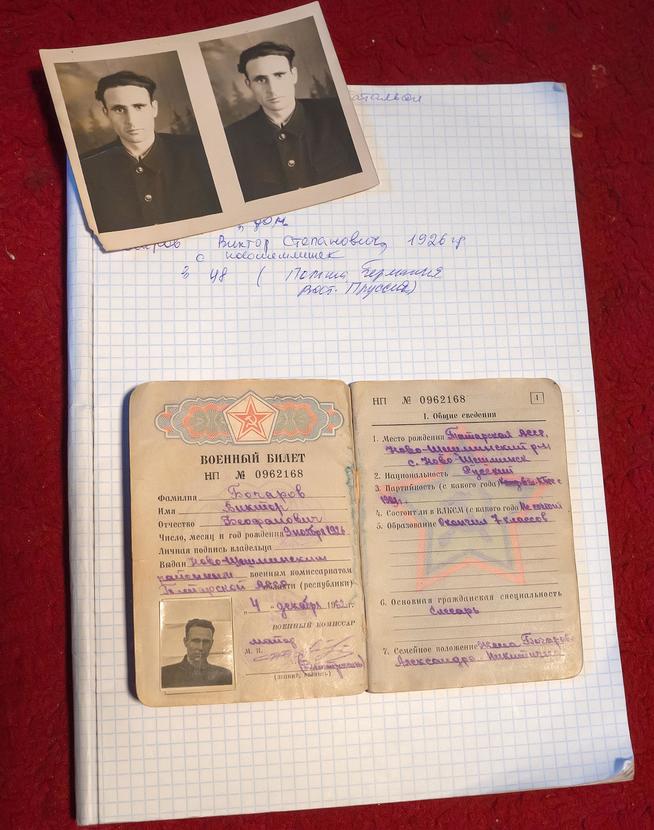 дом
Виктор Степанович, 1926 г
с новошешминск
3 УФ ( Польша, Германия
Вост. Пруссия)
ВОЕННЫЙ БИЛЕТ
НП № 0962168
Фамилия Бочаров
Имя Виктор
Отчество Феофанович
Число, месяц и год рождения 9 ноября 1926
Личная подпись владельца
Выдан Ново-Шешминским
районным военным комиссариатом
Татарской АССР области (республики)
„4 " декабря 1962 г.
ВОЕННЫЙ КОМИССАР
майор
М. П.
(звание, подпись)
НП № 0962168 1
I. Общие сведения
1. Место рождения Татарская АССР,
Ново-Шешминский р-н
с. Ново-Шешминск
2. Национальность Русский
3. Партийность (с какого года) КПСС с
4. Состоял ли в ВЛКСМ (с какого года) Не состоял
5. Образование Окончил 7 классов
6. Основная гражданская специальность
Слесарь
7. Семейное положение жена Бочарова
Александра Никитична